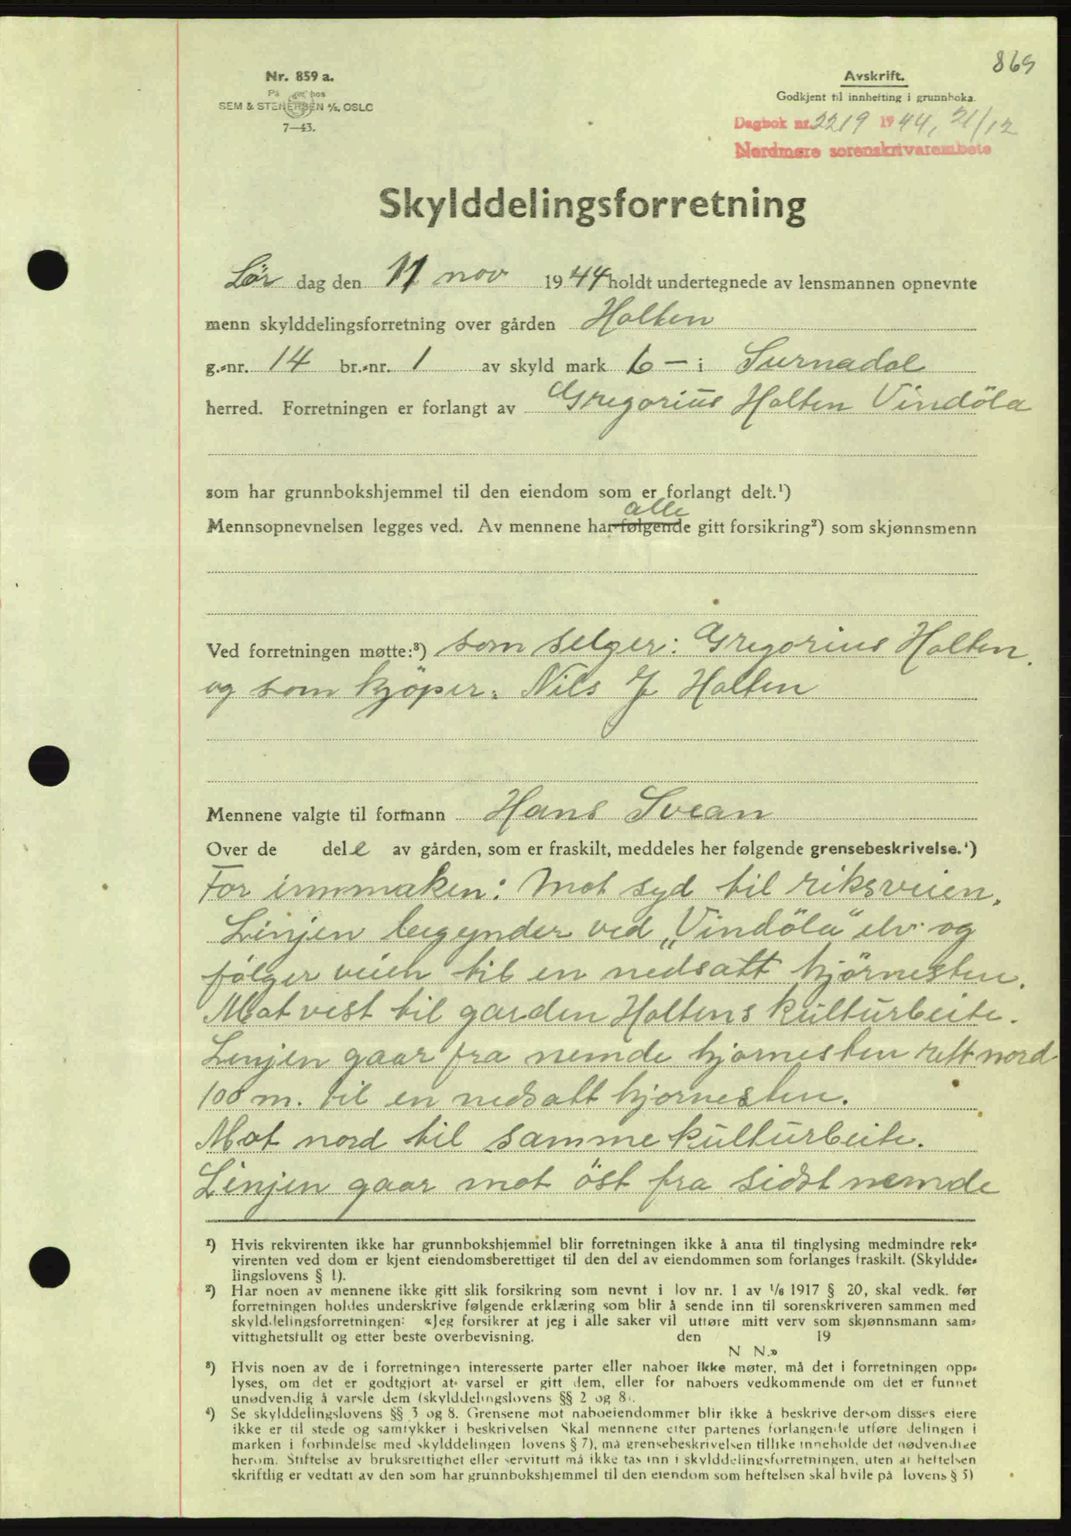 869
Nr. 859 a.
På hos
SEM & STENERSEN A/S, OSLO
7—43.
Avskrift.
Godkjent til innhefting i grunnboka.
Dagbok nr. 2219 1944, 21/12
Nordmøre sorenskrivarembete
Skylddelingsforretning
Lør dag den 11 nov 1944 holdt undertegnede av lensmannen opnevnte
menn skylddelingsforretning over gården Holten
g.-nr. 14 br.-nr. 1 av skyld mark 6 — i Surnadal
herred. Forretningen er forlangt av Gregorius Holten Vindöla
som har grunnbokshjemmel til den eiendom som er forlangt delt.¹)
alle
Mennsopnevnelsen legges ved. Av mennene har følgende gitt forsikring²) som skjønnsmenn
Ved forretningen møtte:³) som selger: Gregorius Holten.
og som kjöper: Nils J Holten
Mennene valgte til formann Hans Svean
Over de dele av gården, som er fraskilt, meddeles her følgende grensebeskrivelse.⁴)
For innmarken: Mot syd til riksveien.
Linjen begynder ved „Vindöla" elv og
følger veien til en nedsatt hjörnesten.
Mot vest til garden Holtens kulturbeite.
Linjen gaar fra nemde hjornesten rett nord
100 m. til en nedsatt hjornesten.
Mot nord til samme kulturbeite.
Linjen gaar mot öst fra sidst nemde
¹) Hvis rekvirenten ikke har grunnbokshjemmel blir forretningen ikke å anta til tinglysing medmindre rek-
virenten ved dom er kjent eiendomsberettiget til den del av eiendommen som forlanges fraskilt. (Skyldde-
lingslovens § 1).
²) Har noen av mennene ikke gitt slik forsikring som nevnt i lov nr. 1 av 1/6 1917 § 20, skal vedk. før
forretningen holdes underskrive følgende erklæring som blir å sende inn til sorenskriveren sammen med
skylddelingsforretningen: «Jeg forsikrer at jeg i alle saker vil utføre mitt verv som skjønnsmann sam-
vittighetsfullt og etter beste overbevisning. den 19
N N.»
³) Hvis noen av de i forretningen interesserte parter eller naboer ikke møter, må det i forretningen opp-
lyses, om det er godtgjort at varsel er gitt dem, eller for naboers vedkommende om det er funnet
unødvendig å varsle dem (skylddelingslovens §§ 2 og 8).
⁴) Se skylddelingslovens §§ 3 og 8. Grensene mot naboeiendommer blir ikke å beskrive dersom disses eiere
ikke er til stede og samtykker i beskrivelsen Skal mennene etter partenes forlangende utføre delingen i
marken i forbindelse med skylddelingen lovens § 7), må grensebeskrivelsen tillike inneholde det nødvendige
herom. Stiftelse av bruksrettighet eller servitutt må ikke tas inn i skylddelingsforretningen, uten at heftelsen
skriftlig er vedtatt av den som har grunnbokshjemmel til den eiendom som heftelsen skal hvile på lovens § 5)